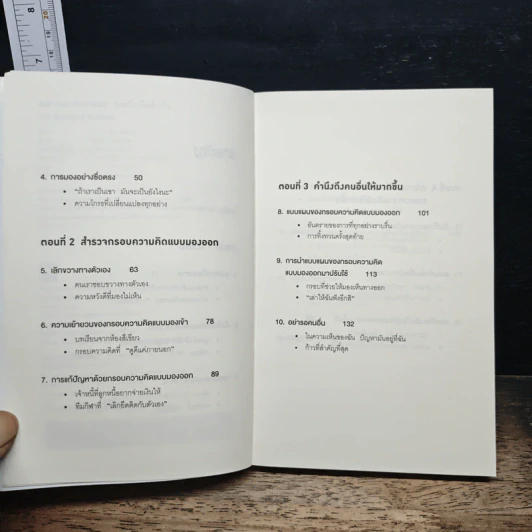 8
20
7
4. การมองอย่างซื่อตรง 50
• "ถ้าเราเป็นเขา มันจะเป็นยังไงนะ"
• ความโกรธที่เปลี่ยนแปลงทุกอย่าง
ตอนที่ 2 สำรวจกรอบความคิดแบบมองออก
5. เลิกขวางทางตัวเอง 63
• คนเราชอบขวางทางตัวเอง
• ความหวังดีที่มองไม่เห็น
6. ความเย้ายวนของกรอบความคิดแบบมองเข้า 78
• บทเรียนจากห้องสีเขียว
• กรอบความคิดที่ "ดูดีแค่ภายนอก"
7. การแก้ปัญหาด้วยกรอบความคิดแบบมองออก 89
• เจ้าหนี้ที่ลูกหนี้อยากจ่ายเงินให้
• ทีมกีฬาที่ "เลิกยึดติดกับตัวเอง"
ตอนที่ 3 คำนึงถึงคนอื่นให้มากขึ้น
8. แบบแผนของกรอบความคิดแบบมองออก 101
• อันตรายของการที่ทุกอย่างราบรื่น
• การทิ้งทวนครั้งสุดท้าย
9. การนำแบบแผนของกรอบความคิด
แบบมองออกมาปรับใช้ 113
• กรอบที่ช่วยให้มองเห็นทางออก
• "เล่าให้ฉันฟังอีกสิ"
10. อย่ารอคนอื่น 132
• ในความเห็นของฉัน ปัญหามันอยู่ที่ฉัน
• ก้าวที่สำคัญที่สุด